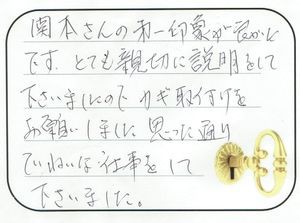 関本さんの第一印象が良かった
です。とても親切に説明をして
下さいましたので カギ取付けを
お願いしました 思った通り
ていねいな仕事をして
下さいました。